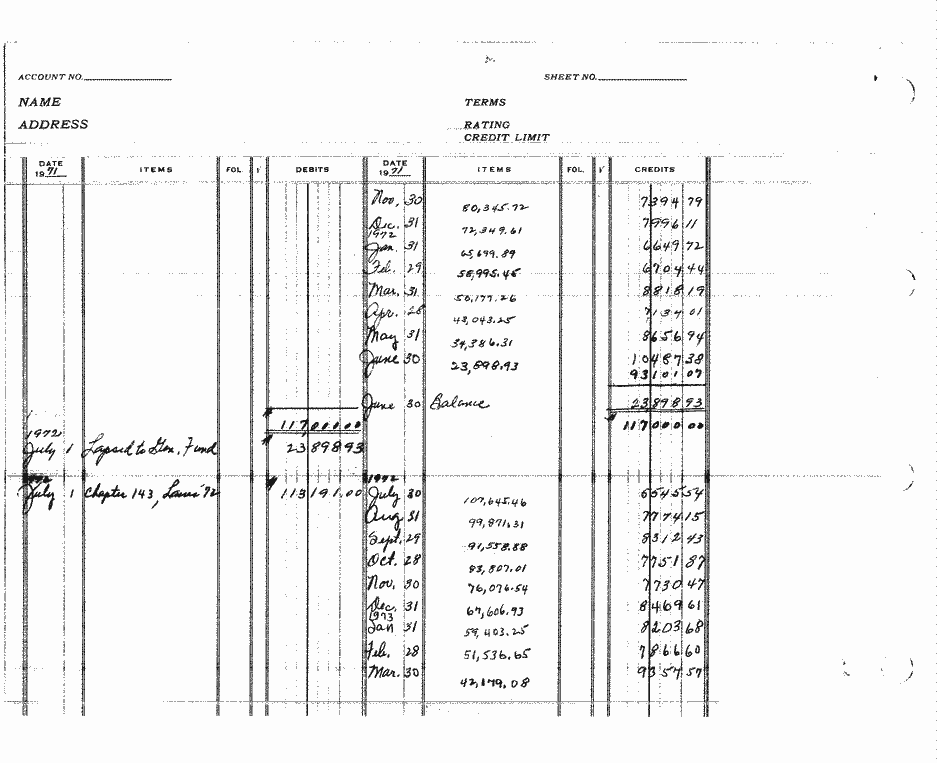 ACCOUNT NO. SHEET NO.
NAME TERMS
ADDRESS RATING
CREDIT LIMIT
DATE 1971 ITEMS FOL. √ DEBITS DATE 1971 ITEMS FOL. √ CREDITS
Nov. 30 80,345.72 7394 79
Dec. 31 72,349.61 7996 11
1972
Jan. 31 65,699.89 6649 72
Feb. 29 58,995.45 6704 44
Mar. 31 50,177.26 8818 19
Apr. 28 43,043.25 7134 01
May 31 34,386.31 8656 94
June 30 23,898.93 10487 38
93101 07
June 30 Balance 23898 93
117000 00 117000 00
1972
July 1 Lapsed to Gen. Fund 23898 93
1972 1972
July 1 Chapter 143, Laws '72 113191.00 July 30 107,645.46 6545 54
Aug 31 99,871.31 7774 15
Sept. 29 91,558.88 8312 43
Oct. 28 83,807.01 7751 87
Nov. 30 76,076.54 7730 47
Dec. 31 67,606.93 8469 61
1973
Jan 31 59,403.25 8203 68
Feb. 28 51,536.65 7866 60
Mar. 30 42,179.08 9357 57